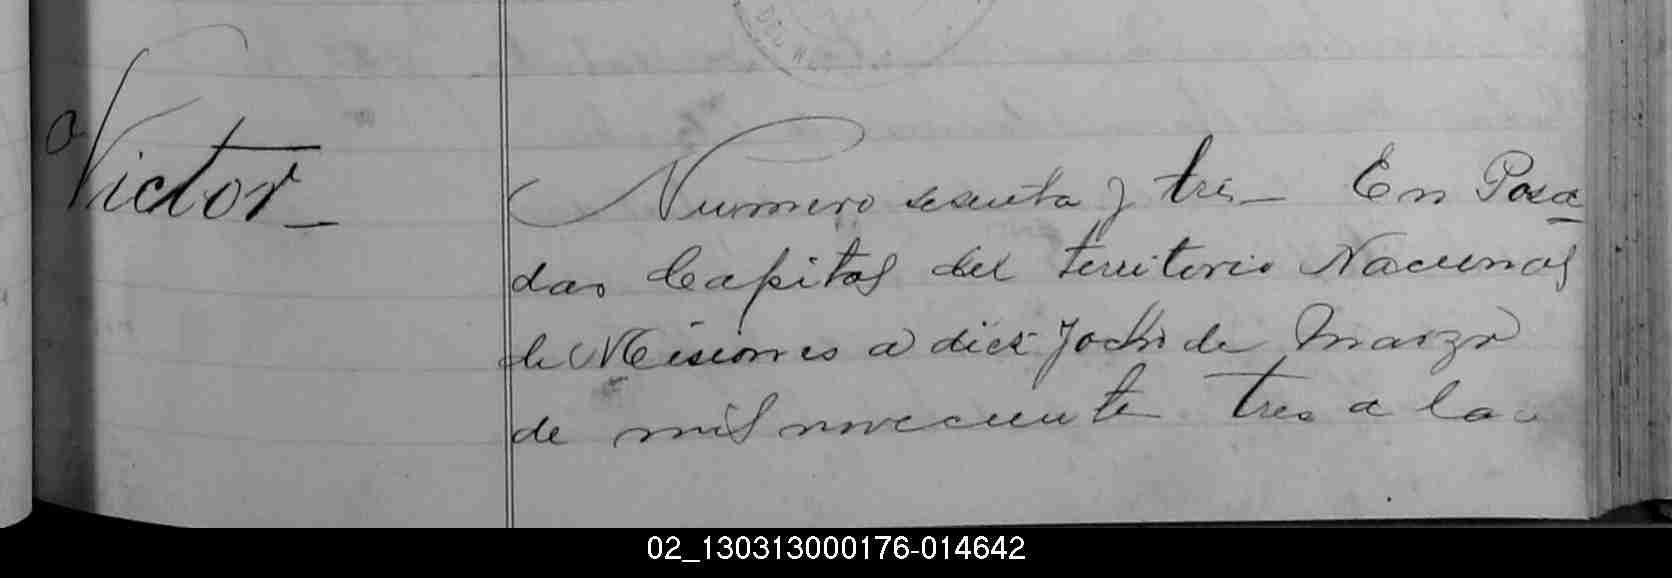 Victor
Numero sesenta y tres En Posa
das Capital del territorio Nacional
de Misiones a diez y ocho de Marzo
de mil noveciento tres a las
02_130313000176-014642